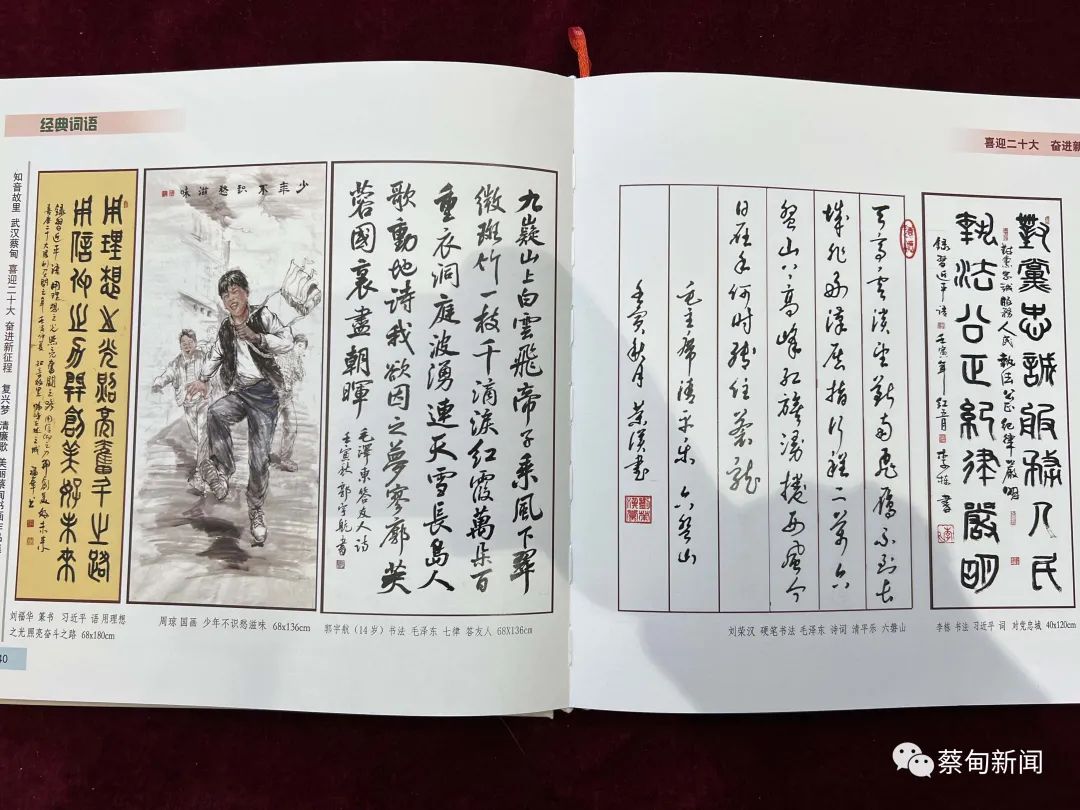 经典词语
知音故里 武汉蔡甸 喜迎二十大 奋进新征程 复兴梦 清廉歌 美丽蔡甸书画作品
用理想之光照亮奮斗之路
用信仰之力開創美好未來
少年不識愁滋味
九嶷山上白雲飛帝子乘風下翠
微斑竹一枝千滴淚紅霞萬朵百
重衣洞庭波湧連天雪長島人
歌動地詩我欲因之夢寥廓芙
蓉國裏盡朝暉
毛澤東答友人詩
壬寅秋郭宇航書
刘福华 篆书 习近平 语 用理想
之光照亮奋斗之路 68x180cm
周琼 国画 少年不识愁滋味 68x136cm
郭宇航(14岁)书法 毛泽东 七律 答友人 68X136cm
40
喜迎二十大 奋进新
天高云淡望断南飞雁不到长
城非好汉屈指行程二万六
盘山上高峰红旗漫捲西风今
日在手何时缚住苍龙
毛主席清平乐 六盘山
壬寅秋月 荣汉书
對黨忠誠服務人民
对党忠诚服务人民 执法公正纪律严明
執法公正紀律嚴明
錄習近平语 壬寅年 红五月 李栋 書
刘荣汉 硬笔书法 毛泽东 诗词 清平乐 六磐山
李栋 书法 习近平 词 对党忠城 40x120cm
蔡甸新闻